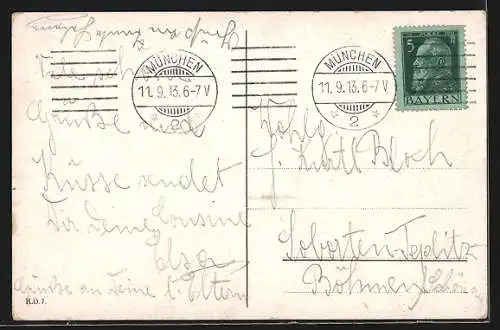 Viele sch.
Grüße und
Küsse sendet
Dir Deine Cousine
Elsa
Grüße an Deine l. Eltern
R.O.7.
MÜNCHEN
11.9.13.6-7V
2
MÜNCHEN
11.9.13.6-7V
2
5
BAYERN
Kurtl Bloch
Teplitz
Böhmen